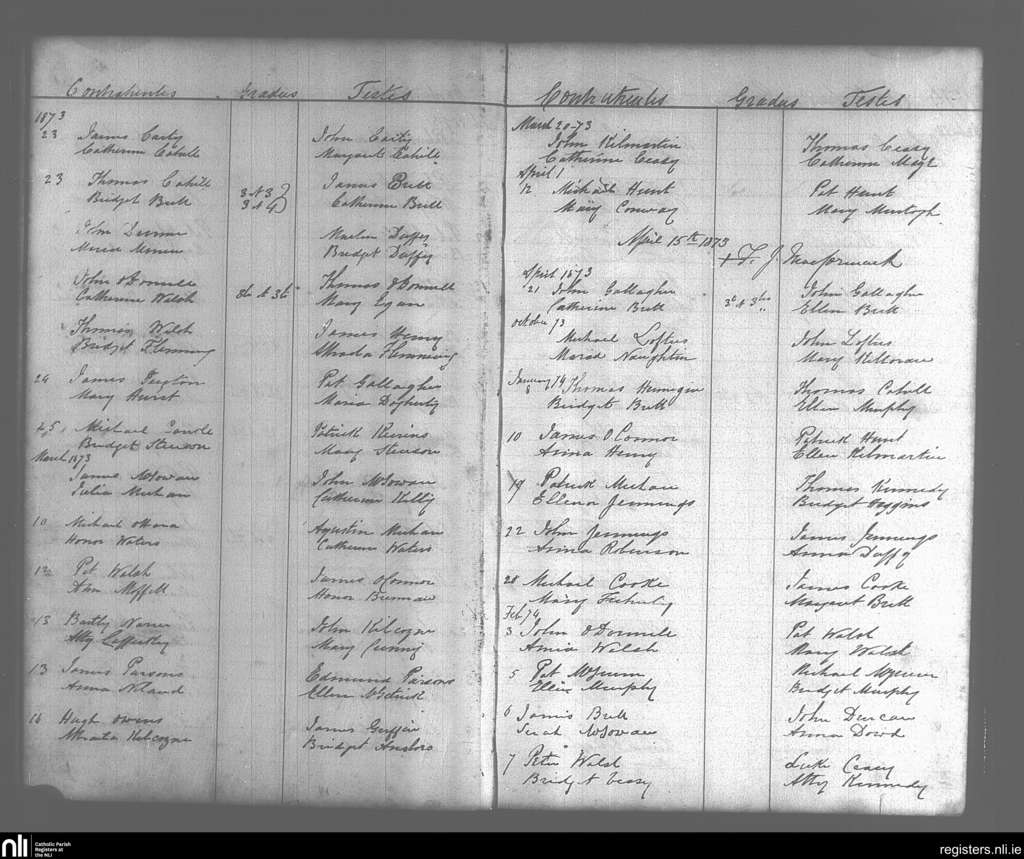 Contrahentes Gradus Testes
1873
23 James Carty John Carty
Catherine Cahill Margaret Cahill
23 Thomas Cahill 3 At 3 James Brett
Bridget Brett 3 At 4 Catherine Brett
John Martin Duffy
Maria Bridget Duffy
John O Donnell Thomas O Donnell
Catherine Walsh At 3tio Mary Egan
Thomas Walsh James Henry
Bridget Flemming Flemming
24 James Pat Gallagher
Mary Hurst Maria Dogherty
Michael Patrick Kerins
Bridget Stenson Mary Stenson
March 1873
James McGowan John McGowan
Julia Meehan Catherine Kelly
10 Michael O Hara Agustin Meehan
Honor Waters Catherine Waters
12 Pat Walsh James O Connor
Ann Moffitt Honor Brennan
13 Bartly John Kilcoyne
Atty Lafferty Mary
13 James Parsons Edmund Parsons
Anna Noland Ellen
16 Hugh Owens James
Kilcoyne Bridget Ansboro
Contrahentes Gradus Testes
March 20-73
John Kilmartin Thomas Ceasy
Catherine Ceasy Catherine
April 1
12 Michael Hunt Pat Hunt
Mary Conway Mary Murtagh
April 15th 1873
+ F. J. MacCormack
April 1873
21 John Gallagher 3o At 3tio John Gallagher
Catherine Brett Ellen Brett
October 73
Michael Loftus John Loftus
Naughton Mary Killoran
January 74
8 Thomas Thomas Cahill
Bridget Brett Ellen Murphy
10 James O Connor Patrick Hunt
Anna Henry Ellen Kilmartin
19 Patrick Meehan Thomas Kennedy
Ellenor Jennings Bridget
22 John Jennings James Jennings
Anna Robinson Anna Duffy
28 Michael Cooke James Cooke
Mary Margaret Brett
Feb 74
3 John O Donnell Pat Walsh
Walsh Mary Walsh
5 Pat Michael
Murphy Bridget Murphy
6 James Brett John Duncan
Sarah McGowan Anna Dowd
7 Peter Walsh Luke Ceasy
Bridget Ceasy Atty Kennedy
nli Catholic Parish
Registers at
the NLI
registers.nli.ie